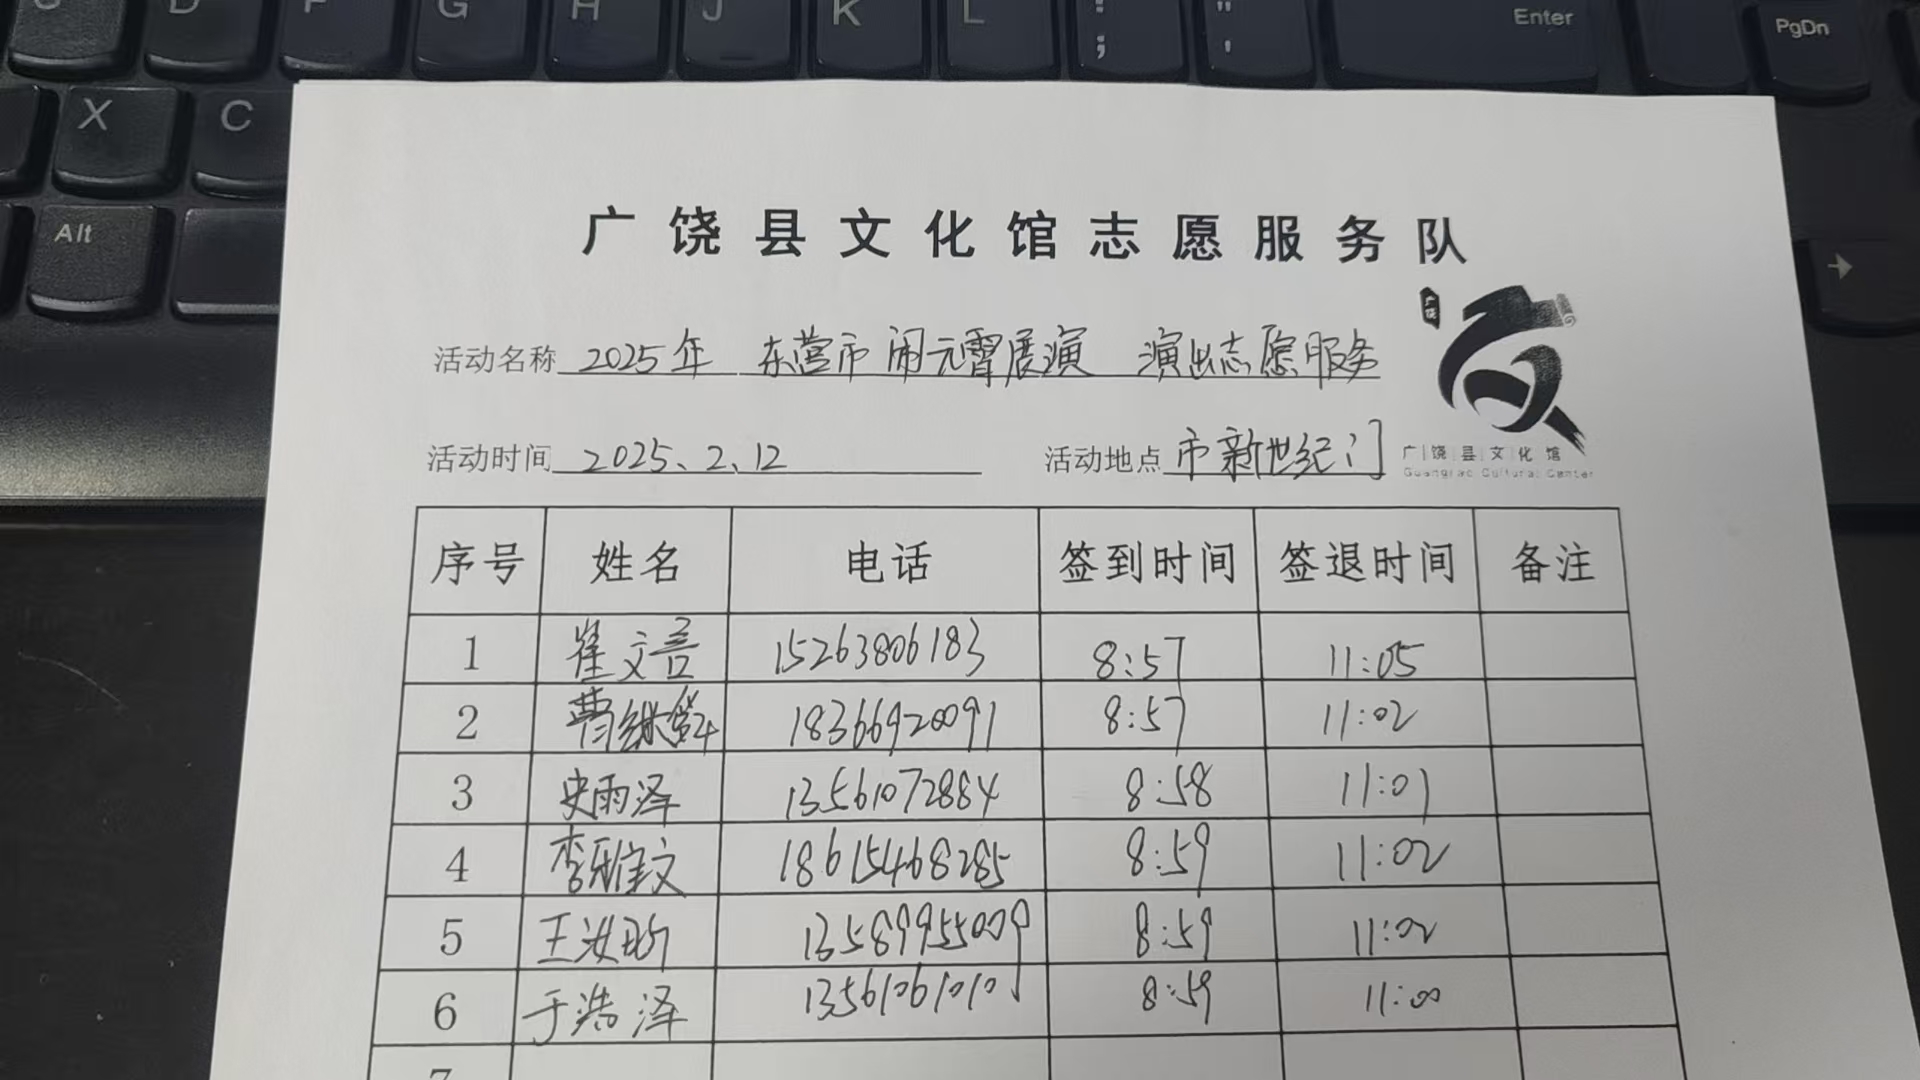 S D F G H J K L : ; " ' Enter PgDn
X C
Alt
广饶县文化馆志愿服务队
广饶
活动名称 2025年 东营市闹元宵展演 演出志愿服务
活动时间 2025、2、12 活动地点 市新世纪门
广饶县文化馆
Guangrao Cultural Center
序号 姓名 电话 签到时间 签退时间 备注
1 崔文 15263806183 8:57 11:05
2 曹继 18366920091 8:57 11:02
3 史雨泽 13561072884 8:58 11:01
4 李雅文 18615468285 8:59 11:02
5 王汝昕 13589955009 8:59 11:02
6 于浩泽 13561061010 8:59 11:00
7